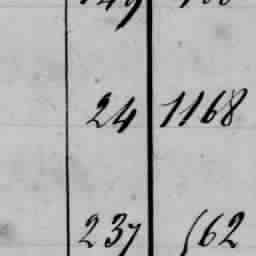 24 1168
237 562